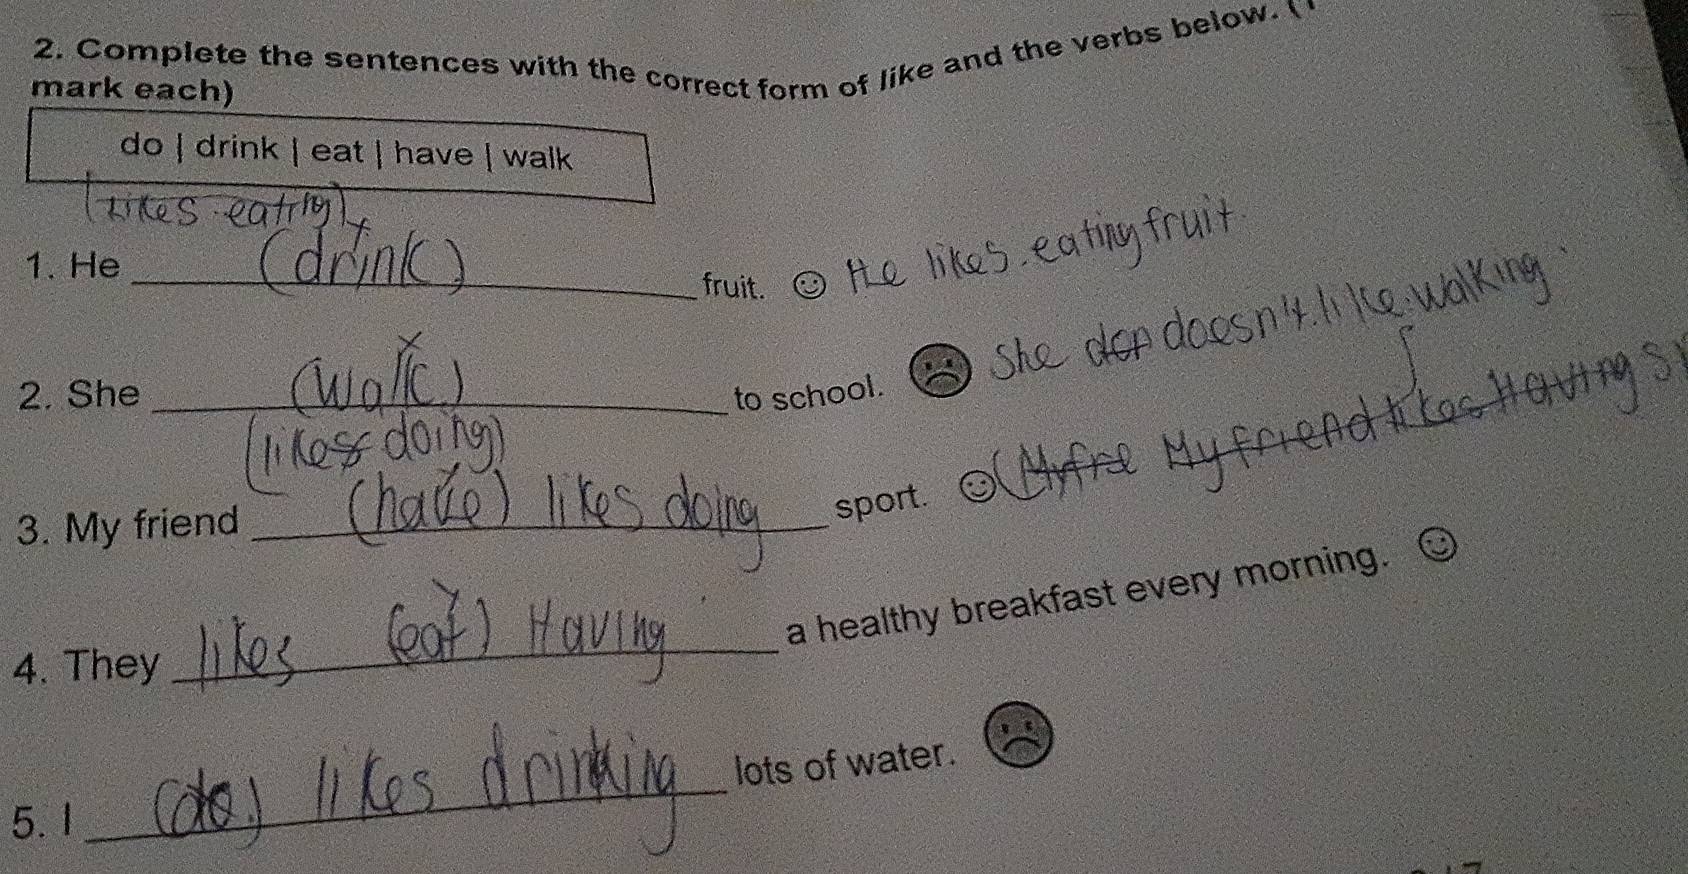 2. Complete the sentences with the correct form of like and the verbs below. (1
mark each)
do | drink | eat | have | walk
(likes eating)
1. He (drink) fruit. He likes. eating fruit.
2. She (walk) to school. She doesn't. like. walking
(likes doing)
3. My friend (have) likes doing sport. My friend likes Having
4. They likes (eat) Having a healthy breakfast every morning.
5. I (do) likes drinking lots of water.